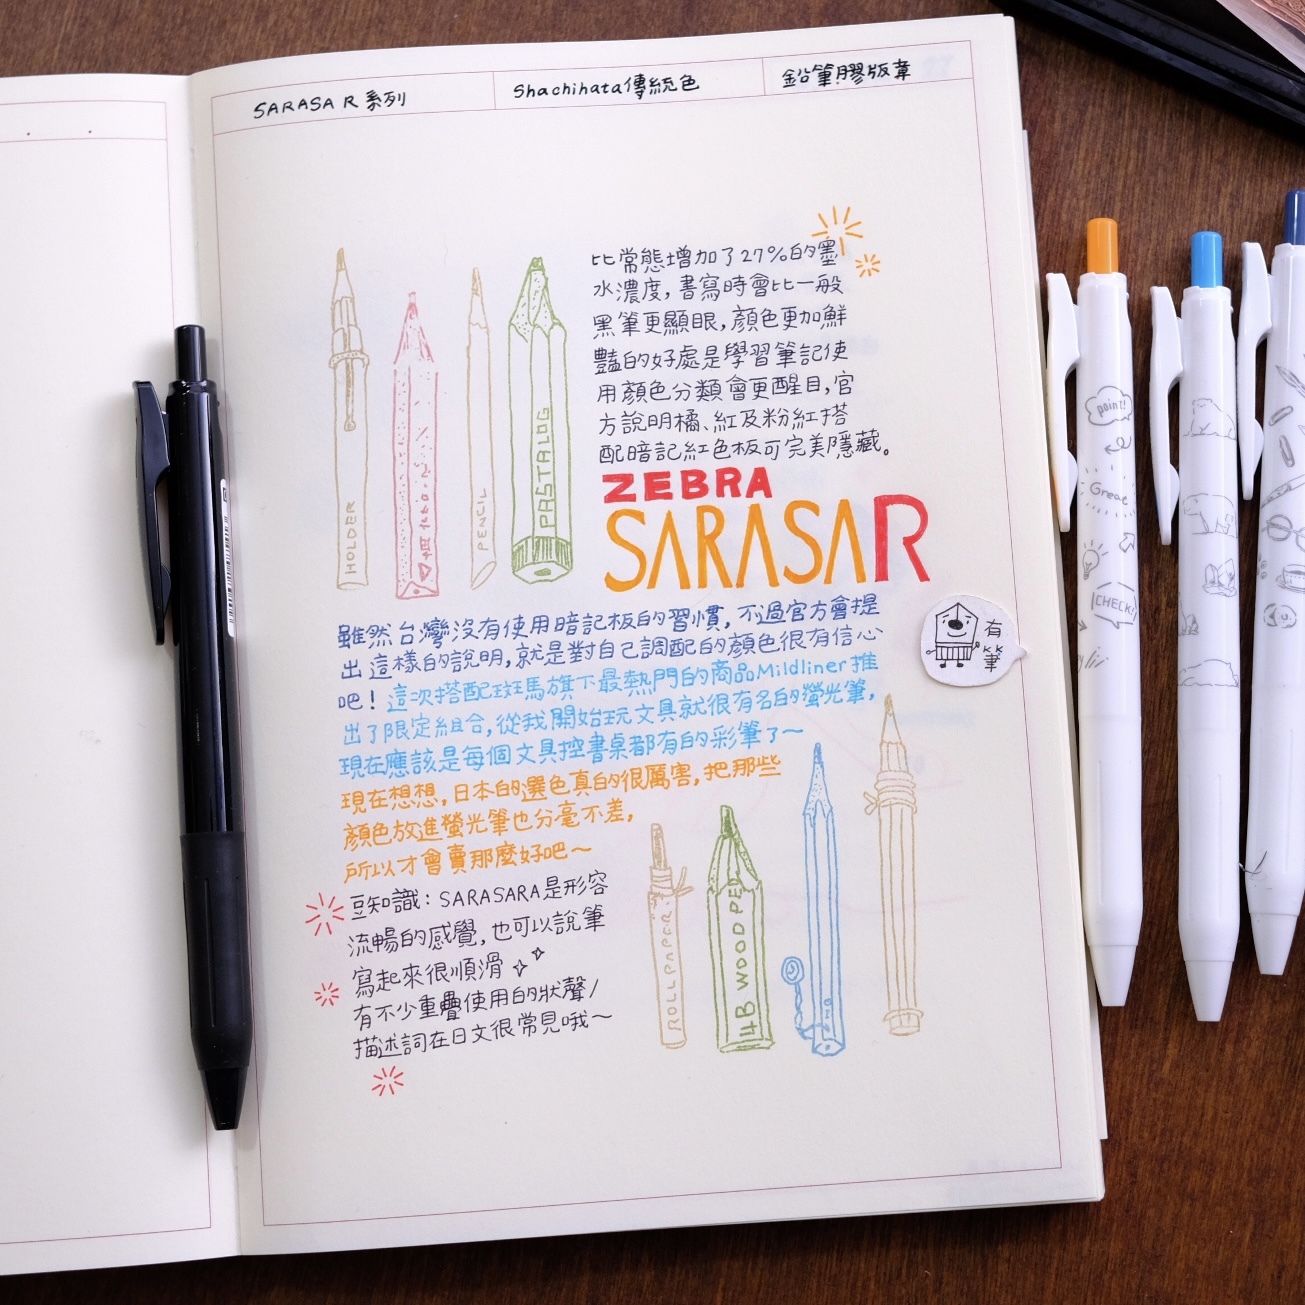 SARASA R 系列
Shachihata傳統色
鉛筆膠版章
比常態增加了27%的墨
水濃度,書寫時會比一般
黑筆更顯眼,顏色更加鮮
豔的好處是學習筆記使
用顏色分類會更醒目,官
方說明橘、紅及粉紅搭
配暗記紅色板可完美隱藏。
HOLDER
PENCIL
PASTALOG
ZEBRA
SARASAR
雖然台灣沒有使用暗記板的習慣,不過官方會提
出這樣的說明,就是對自己調配的顏色很有信心
吧!這次搭配斑馬旗下最熱門的商品Mildliner推
出了限定組合,從我開始玩文具就很有名的螢光筆,
現在應該是每個文具控書桌都有的彩筆了~
現在想想,日本的選色真的很厲害,把那些
顏色放進螢光筆也分毫不差,
所以才會賣那麼好吧~
豆知識:SARASARA是形容
流暢的感覺,也可以說筆
寫起來很順滑
有不少重疊使用的狀聲/
描述詞在日文很常見哦~
ROLL PAPER
4B WOOD PE
有
筆
point!
Great
CHECK!